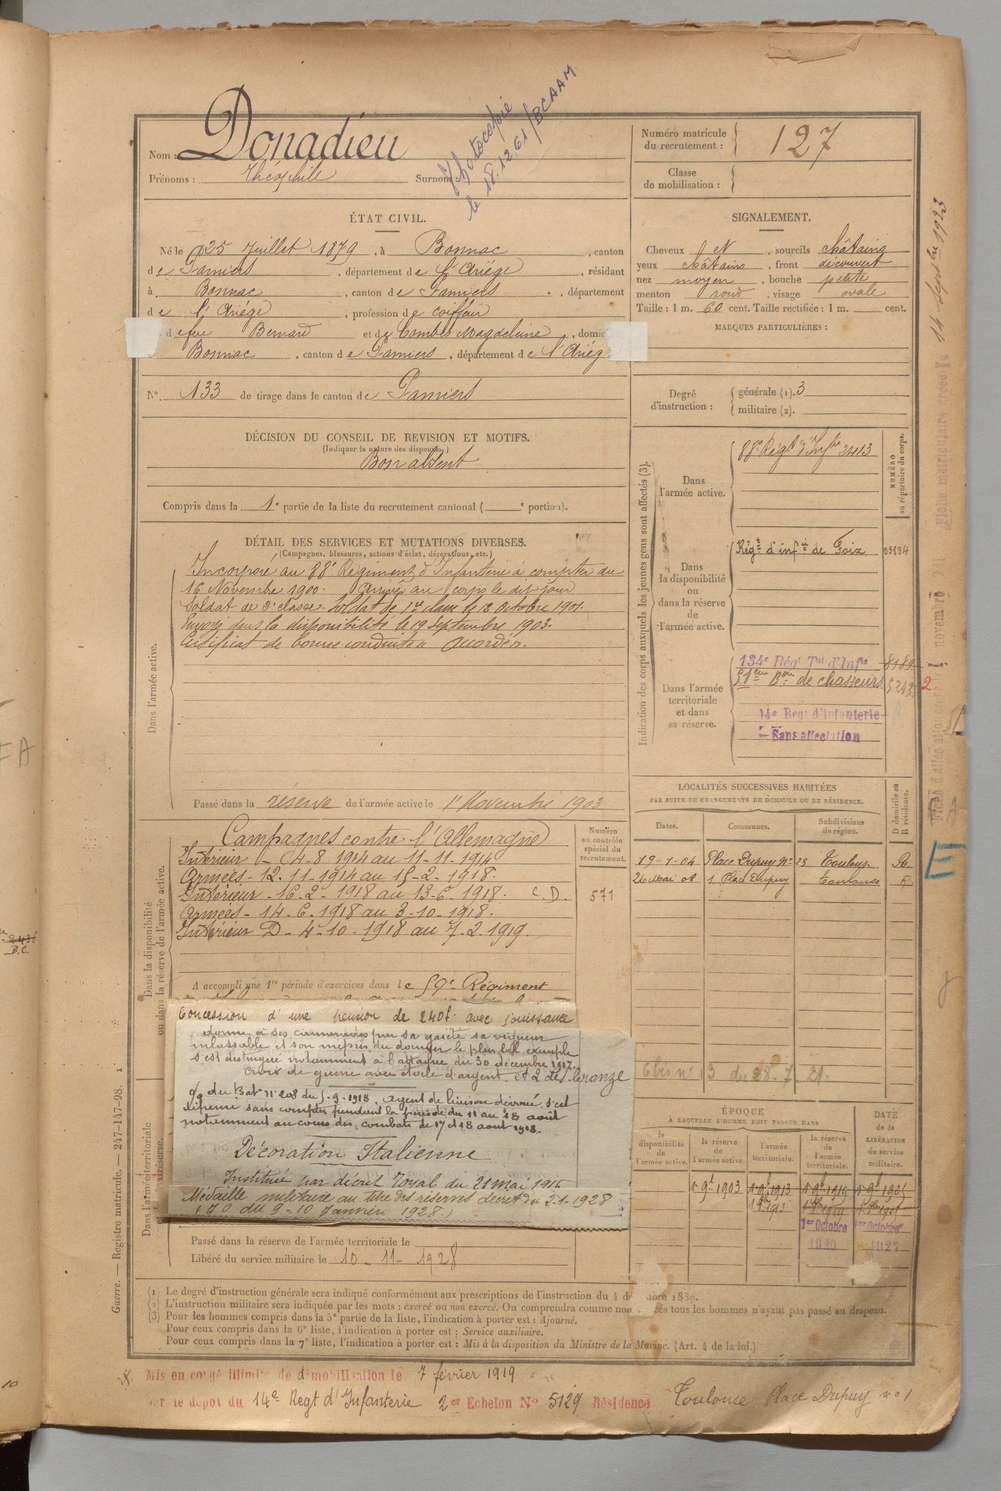 Nom : Donadieu
Prénoms : Théophile Surnom :
Photocopie
le 18.12.61/BCAAM
Numéro matricule
du recrutement : 127
Classe
de mobilisation :
ÉTAT CIVIL.
Né le 25 Juillet 1879, à Bonnac, canton
de Pamiers, département de l'Ariège, résidant
à Bonnac, canton de Pamiers, département
de l'Ariège, profession de coiffeur
de feu Bernard et de Combes Magdeleine, domici
Bonnac, canton de Pamiers, département de l'Arièg
N° 133 de tirage dans le canton de Pamiers
SIGNALEMENT.
Cheveux , sourcils châtains
yeux châtains, front découvert
nez moyen, bouche petite
menton rond, visage ovale
Taille : 1 m. 60 cent. Taille rectifiée : 1 m. cent.
MARQUES PARTICULIÈRES :
Degré
d'instruction :
générale (1). 3
militaire (2).
DÉCISION DU CONSEIL DE REVISION ET MOTIFS.
(Indiquer la nature des dispenses.)
Bon absent
Compris dans la 1e partie de la liste du recrutement cantonal ( e portion).
DÉTAIL DES SERVICES ET MUTATIONS DIVERSES.
(Campagnes, blessures, actions d'éclat, décorations, etc.)
Dans l'armée active.
Incorporé au 88e Régiment d'Infanterie à compter du
16 Novembre 1900. Arrivé au corps le dit jour
Soldat de 2e classe. Soldat de 1re classe le 12 Octobre 1901.
Envoyé dans la disponibilité le 19 septembre 1903.
Certificat de bonne conduite accordé.
Passé dans la réserve de l'armée active le 1er Novembre 1903
Indication des corps auxquels les jeunes gens sont affectés (3).
NUMÉRO
au répertoire du corps.
Dans
l'armée active.
88e Régt d'Infie 2413
Dans
la disponibilité
ou
dans la réserve
de
l'armée active.
Régt d'infie de Foix
Dans l'armée
territoriale
et dans
sa réserve.
134e Régt Tal d'Infie
de chasseurs 5243
14e Régt d'Infanterie
Sans affectation
Dans la disponibilité
ou dans la réserve de l'armée active.
Numéro
au contrôle
spécial du
recrutement.
571
Campagnes contre l'Allemagne
Intérieur - 4-8-1914 au 11-11-1914
Armées - 12-11-1914 au 15-2-1918.
Intérieur - 16-2-1918 au 13-6-1918. C.D.
Armées - 14-6-1918 au 3-10-1918.
Intérieur D - 4-10-1918 au 7-2-1919.
A accompli une 1re période d'exercices dans le 59e Régiment
LOCALITÉS SUCCESSIVES HABITÉES
PAR SUITE DE CHANGEMENTS DE DOMICILE OU DE RÉSIDENCE.
Dates. Communes. Subdivisions
de région.
D domicile ou
R résidence.
19-1-04 Place Dupuy No 13 Toulouse
26 Mai 08 1, Place Dupuy Toulouse R
Concession d'une pension de 240f. avec jouissance
donne à ses camarades par sa gaieté sa vigueur
inlassable et son mépris du danger le plus bel exemple
s'est distingué notamment à l'attaque du 30 décembre 1917.
Croix de guerre avec étoile d'argent, et 2 de Bronze
o/o du Bat n° 208 du 5-9-1918. Agent de liaison dévoué s'est
dépensé sans compter pendant la période du 11 au 18 août
notamment au cours des combats de 17 et 18 août 1918.
Décoration Italienne
Institué par décret Royal du 21 mai 1916
Médaille militaire au titre des réserves décret du 2.1.1928
(JO du 9-10 Janvier 1928)
Dans l'armée territoriale
ÉPOQUE
À LAQUELLE L'HOMME DOIT PASSER DANS
DATE
de la
LIBÉRATION
du service
militaire.
la
disponibilité
de
l'armée active.
la réserve
de
l'armée active.
l'armée
territoriale.
la réserve
de
l'armée
territoriale.
1er Octobre
Passé dans la réserve de l'armée territoriale le
Libéré du service militaire le 10-11-1928
(1) Le degré d'instruction générale sera indiqué conformément aux prescriptions de l'instruction du 4 d mbre 1889.
(2) L'instruction militaire sera indiquée par les mots : exercé ou non exercé. On comprendra comme non és tous les hommes n'ayant pas passé au drapeau.
(3) Pour les hommes compris dans la 5e partie de la liste, l'indication à porter est : Ajourné.
Pour ceux compris dans la 6e liste, l'indication à porter est : Service auxiliaire.
Pour ceux compris dans la 7e liste, l'indication à porter est : Mis à la disposition du Ministre de la Marine. (Art. 4 de la loi.)
Mis en congé illimité de démobilisation le 7 février 1919
le dépôt du 14e Régt d'Infanterie 2er Echelon No 5129 Résidence Toulouse Place Dupuy no 1
Guerre. — Registre matricule. — 247-147-98.